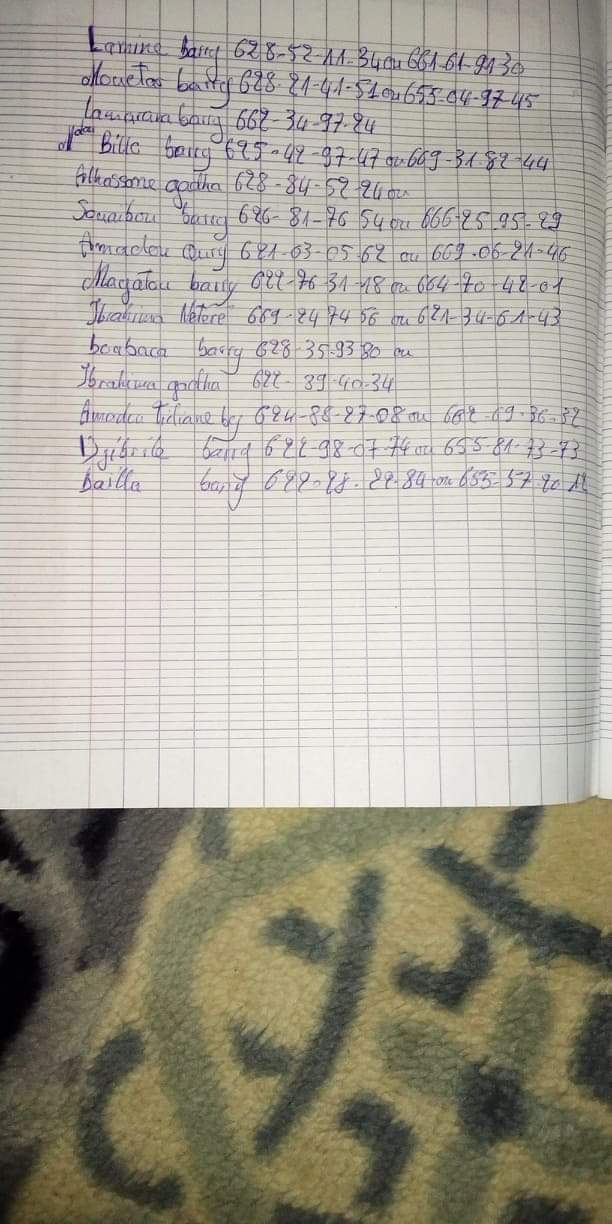 Lamine barry 628-52-11-34 ou 661-61-9130
Mouctar barry 628-21-41-51 ou 655-04-97-45
Lamarana barry 662-34-97-24
Billo barry 625-42-97-47 ou 669-31-82-44
Alhassane gadha 628-84-52-24 ou
Souaibou barry 626-81-76 54 ou 666-25 95-29
Amadou Oury 621-03-05-62 ou 669-06-21-46
Magatou barry 622-76-31-18 ou 664-70-42-01
Ibrahima Néteré 669-24 74 56 ou 621-34-61-43
boubaca barry 628-35-93 80 ou
Ibrahima gadha 622-39-40-34
Amadou Tidiane by 624-88-27-08 ou 662-69-36-32
Djibrila barry 622-98-07-74 ou 655 81-73-73
Bailla barry 622-28-22-84 ou 655-57-20 11